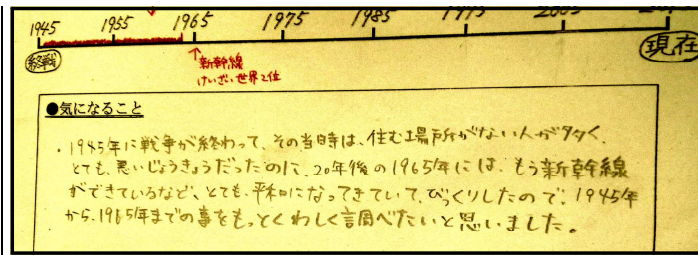 1945 1955 1965 1975 1985 1995 2005
終戦
現在
↑新幹線
けいざい世界2位
●気になること
・1945年に戦争が終わって、その当時は、住む場所がない人が多く、
とても、悪いじょうきょうだったのに、20年後の1965年には、もう新幹線
ができているなど、とても、平和になってきていて、びっくりしたので、1945年
から、1965年までの事をもっとくわしく調べたいと思いました。